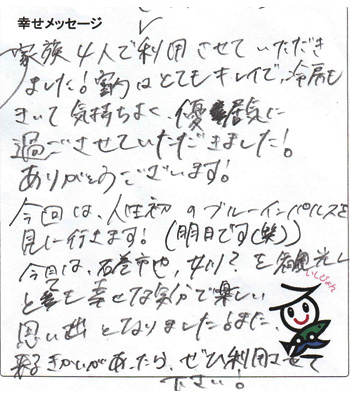 幸せメッセージ
家族4人で利用させていただき
ました。室内はとてもキレイで、冷房も
きいて気持ちよく、優雅に
過ごさせていただきました!
ありがとうございます!
今回は、人生初のブルーインパルスを
見に行きます! (明日です(笑))
今日は、石巻市や、女川を観光し
とを幸せな気分で楽しい
思い出となりました。また、
来るきかいがあったら、ぜひ利用させて
下さい!
いしぴょん